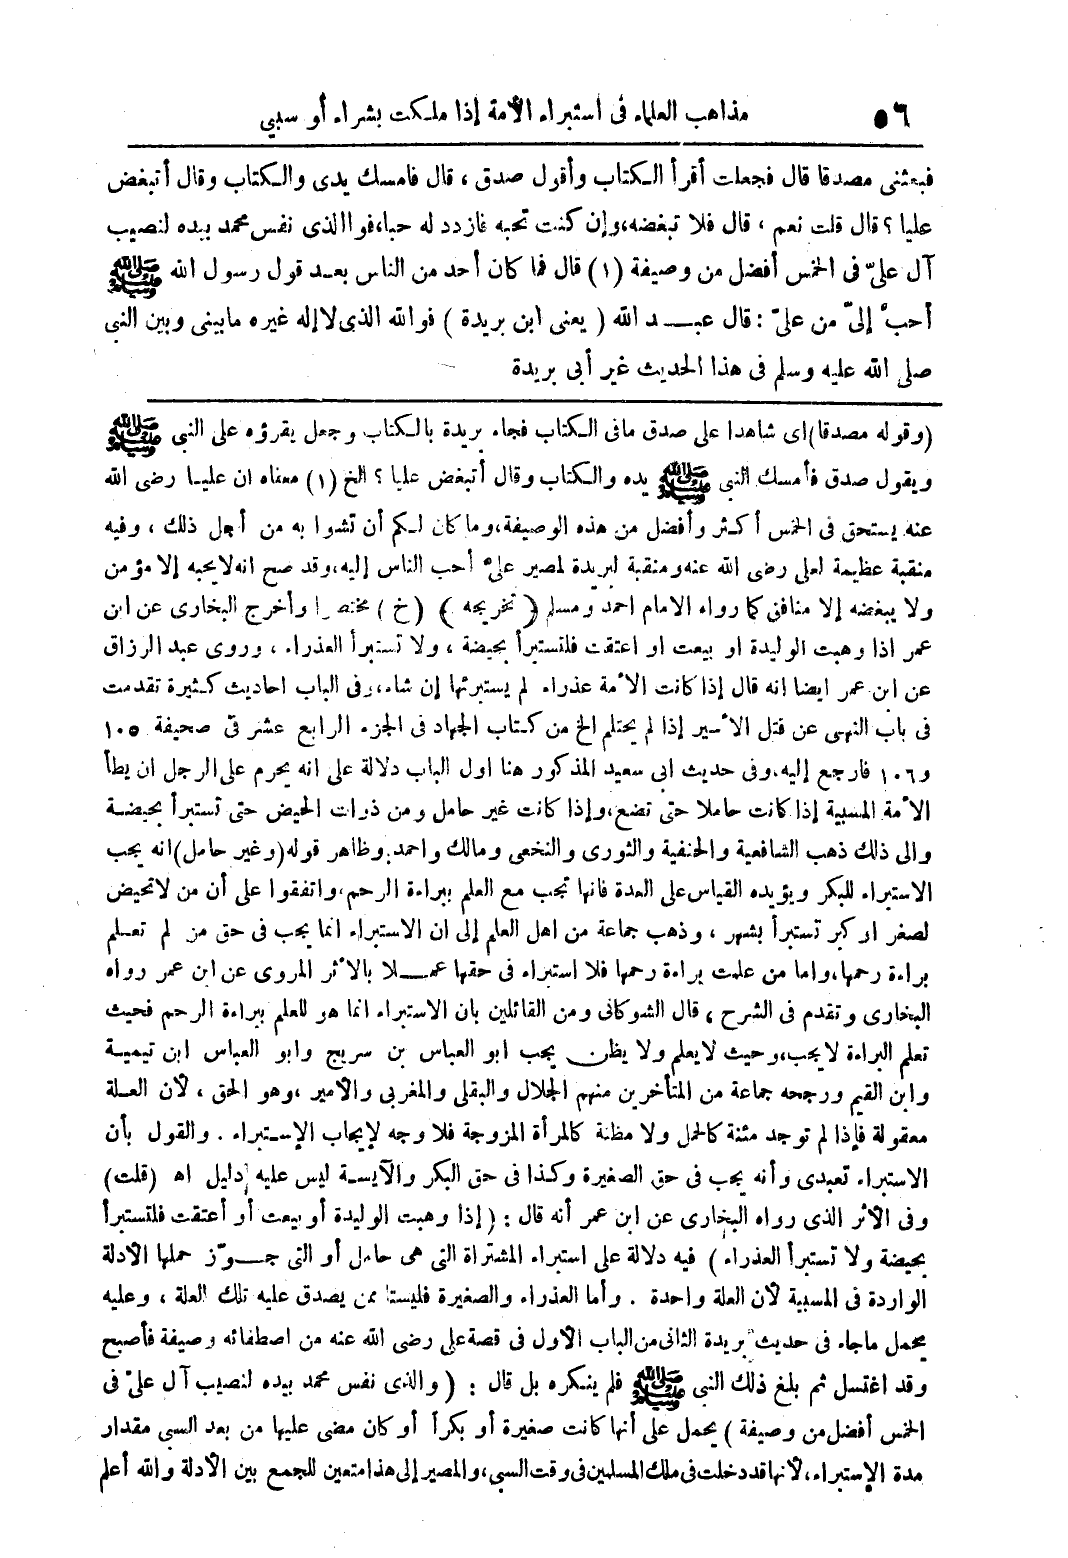 ٥٦ مذاهب العلماء فى استبراء الأمة إذا ملكت بشراء أو سبي
فبعثنى مصدقا قال فجعلت أقرأ الكتاب وأقول صدق ، قال فامسك يدى والكتاب وقال أتبغض
عليا ؟ قال قلت نعم ، قال فلا تبغضه،وإن كنت تحبه فازدد له حبا،فوالذى نفس محمد بيده لنصيب
آل علىّ فى الخمس أفضل من وصيفة (١) قال فما كان أحد من الناس بعد قول رسول الله ﷺ
أحبَّ إلىّ من علىّ : قال عبد الله ( يعنى ابن بريدة ) فوالله الذى لا إله غيره مابينى وبين النبي
صلى الله عليه وسلم فى هذا الحديث غير أبى بريدة
(وقوله مصدقا)اى شاهدا على صدق مافى الكتاب فجاء بريدة بالكتاب وجعل يقرؤه على النبي ﷺ
ويقول صدق فأمسك النبى ﷺ يده والكتاب وقال أتبغض عليا ؟ الخ (١) معناه ان عليا رضى الله
عنه يستحق فى الخمس أكثر وأفضل من هذه الوصيفة،وما كان لكم أن تشوا به من أجل ذلك ، وفيه
منقبة عظيمة لعلى رضى الله عنه ومنقبة لبريدة لمصير علىّ أحب الناس إليه،وقد صح انه لايحبه إلا مؤمن
ولا يبغضه إلا منافق كما رواه الامام احمد ومسلم ( تخريجه ) (خ) مختصرا وأخرج البخارى عن ابن
عمر اذا وهبت الوليدة او بيعت او اعتقت فلتستبرأ بحيضة ، ولا تستبرأ العذراء ، وروى عبد الرزاق
عن ابن عمر ايضا انه قال إذا كانت الأمة عذراء لم يستبرئها إن شاء،وفى الباب احاديث كثيرة تقدمت
فى باب النهى عن قتل الأسير إذا لم يحتلم الخ من كتاب الجهاد فى الجزء الرابع عشر فى صحيفة ١٠٥
و١٠٦ فارجع إليه،وفى حديث ابى سعيد المذكور هنا اول الباب دلالة على انه يحرم على الرجل ان يطأ
الأمة المسبية إذا كانت حاملا حتى تضع،وإذا كانت غير حامل ومن ذوات الحيض حتى تستبرأ بحيضة
والى ذلك ذهب الشافعية والحنفية والثورى والنخعى ومالك واحمد،وظاهر قوله(وغير حامل)انه يجب
الاستبراء للبكر ويؤيده القياس على العدة فانها تجب مع العلم ببراءة الرحم،واتفقوا على أن من لاتحيض
لصغر او كبر تستبرأ بشهر ، وذهب جماعة من اهل العلم إلى ان الاستبراء انما يجب فى حق من لم تعلم
براءة رحمها،واما من علمت براءة رحمها فلا استبراء فى حقها عملا بالأثر المروى عن ابن عمر رواه
البخارى وتقدم فى الشرح ، قال الشوكانى ومن القائلين بان الاستبراء انما هو للعلم ببراءة الرحم فحيث
تعلم البراءة لايجب،وحيث لايعلم ولا يظن يجب ابو العباس بن سريج وابو العباس ابن تيمية
وابن القيم ورجحه جماعة من المتأخرين منهم الجلال والبقلى والمغربى والأمير ،وهو الحق ، لأن العلة
معقولة فإذا لم توجد مئنة كالحمل ولا مظنة كالمرأة المزوجة فلا وجه لإيجاب الإستبراء . والقول بأن
الاستبراء تعبدى وأنه يجب فى حق الصغيرة وكذا فى حق البكر والآيسة ليس عليه دليل اه (قلت)
وفى الأثر الذى رواه البخارى عن ابن عمر أنه قال : ( إذا وهبت الوليدة أو بيعت أو أعتقت فلتستبرأ
بحيضة ولا تستبرأ العذراء ) فيه دلالة على استبراء المشتراة التى هى حامل أو التى جوّز حملها الأدلة
الواردة فى المسبية لأن العلة واحدة . وأما العذراء والصغيرة فليستا ممن يصدق عليه تلك العلة ، وعليه
يحمل ماجاء فى حديث بريدة الثانى من الباب الأول فى قصة على رضى الله عنه من اصطفائه وصيفة فأصبح
وقد اغتسل ثم بلغ ذلك النبى ﷺ فلم ينكره بل قال : ( والذى نفس محمد بيده لنصيب آل علىّ فى
الخمس أفضل من وصيفة ) يحمل على أنها كانت صغيرة أو بكرأ أو كان مضى عليها من بعد السبى مقدار
مدة الإستبراء،لأنها قد دخلت فى ملك المسلمين فى وقت السبى،والمصير إلى هذا متعين للجمع بين الأدلة والله أعلم